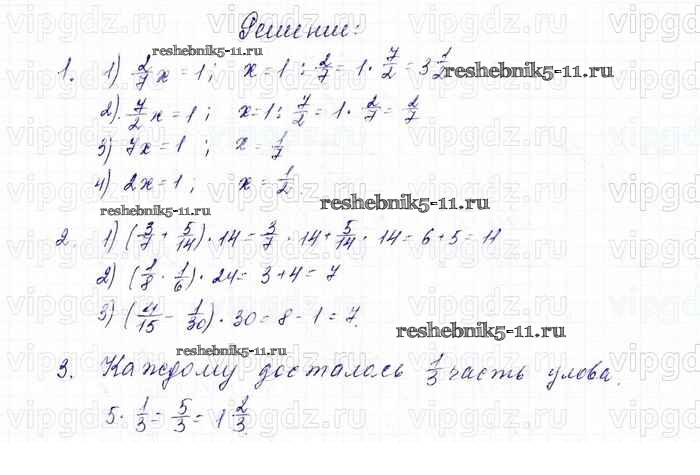 Решение:
reshebnik5-11.ru
1. 1) 2/7 x = 1; x = 1 : 2/7 = 1 · 7/2 = 3 1/2
reshebnik5-11.ru
2) 7/2 x = 1; x = 1 : 7/2 = 1 · 2/7 = 2/7
3) 7x = 1; x = 1/7
4) 2x = 1; x = 1/2.
reshebnik5-11.ru
reshebnik5-11.ru
2. 1) (3/7 + 5/14) · 14 = 3/7 · 14 + 5/14 · 14 = 6 + 5 = 11
2) (1/8 · 1/6) · 24 = 3 + 4 = 7
3) (4/15 - 1/30) · 30 = 8 - 1 = 7.
reshebnik5-11.ru
reshebnik5-11.ru
3. Каждому досталось 1/3 часть улова.
5 · 1/3 = 5/3 = 1 2/3.
vipgdz.ru